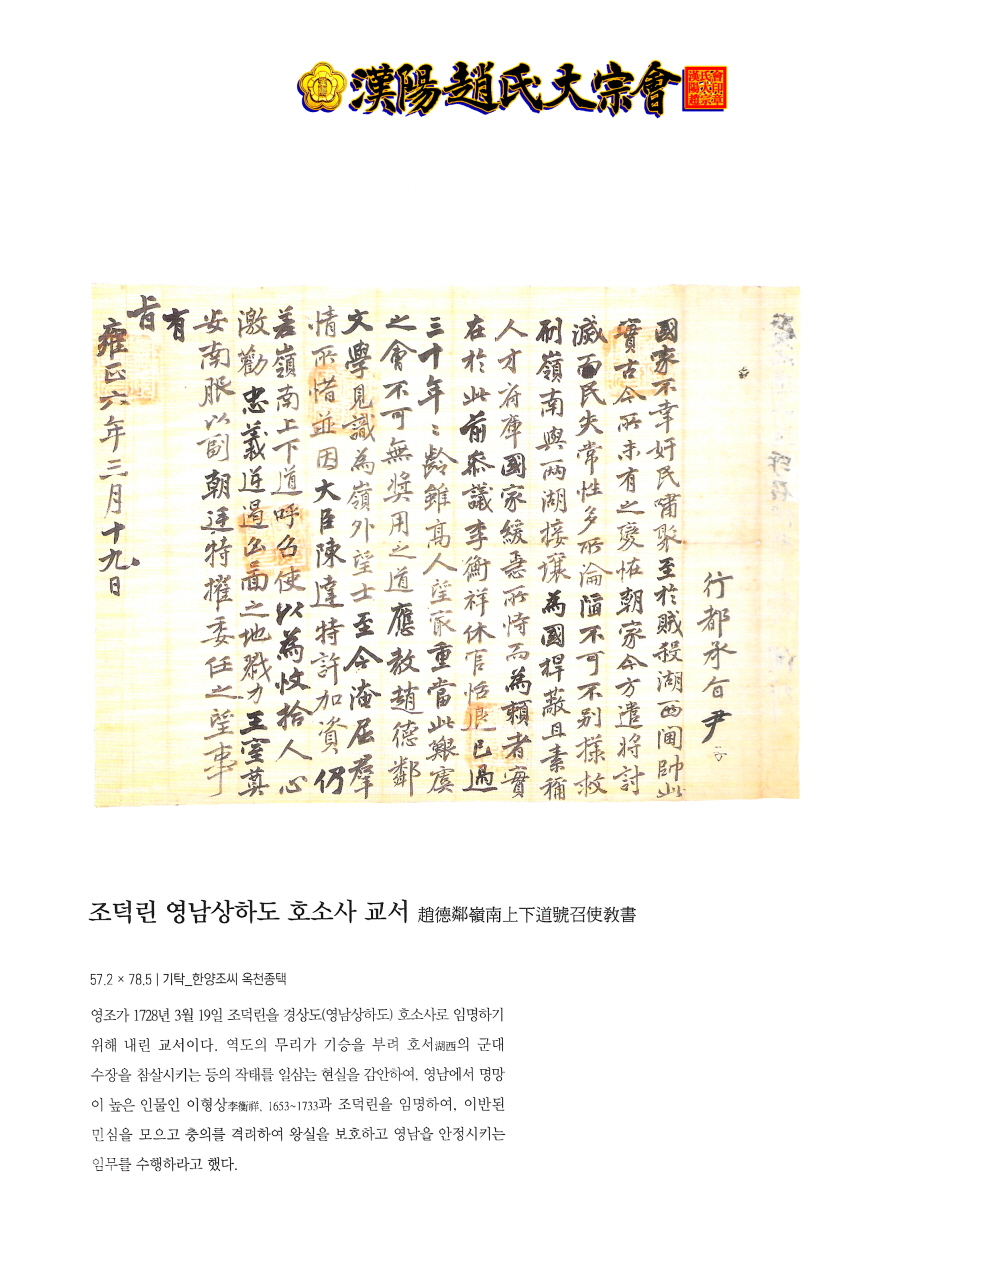 漢陽趙氏大宗會
行都承旨尹
國家不幸奸民嘯聚至於賊殺湖西閫帥此
實古今所未有之變恠朝家今方遣將討
滅而民失常性多所淪陷不可不別樣救
嶺南與兩湖接壤為國捍蔽且素稱
人才府庫國家緩急所恃而為賴者實
在於此前參議李衡祥休官恬退已過
三十年年齡雖高人望最重當此艱虞
之會不可無奬用之道應敎趙德鄰
文學見識為嶺外望士至今淹屈羣
情所惜並因大臣陳達特許加資仍
差嶺南上下道呼召使以為收拾人心
激勸忠義逆遏凶啚之地戮力王室奠
安南服以副朝廷特擢委任之望事
有
旨
雍正六年三月十九日
조덕린 영남상하도 호소사 교서 趙德鄰嶺南上下道號召使敎書
57.2 × 78.5 | 기탁_한양조씨 옥천종택
영조가 1728년 3월 19일 조덕린을 경상도(영남상하도) 호소사로 임명하기
위해 내린 교서이다. 역도의 무리가 기승을 부려 호서湖西의 군대
수장을 참살시키는 등의 작태를 일삼는 현실을 감안하여, 영남에서 명망
이 높은 인물인 이형상李衡祥, 1653~1733과 조덕린을 임명하여, 이반된
민심을 모으고 충의를 격려하여 왕실을 보호하고 영남을 안정시키는
임무를 수행하라고 했다.